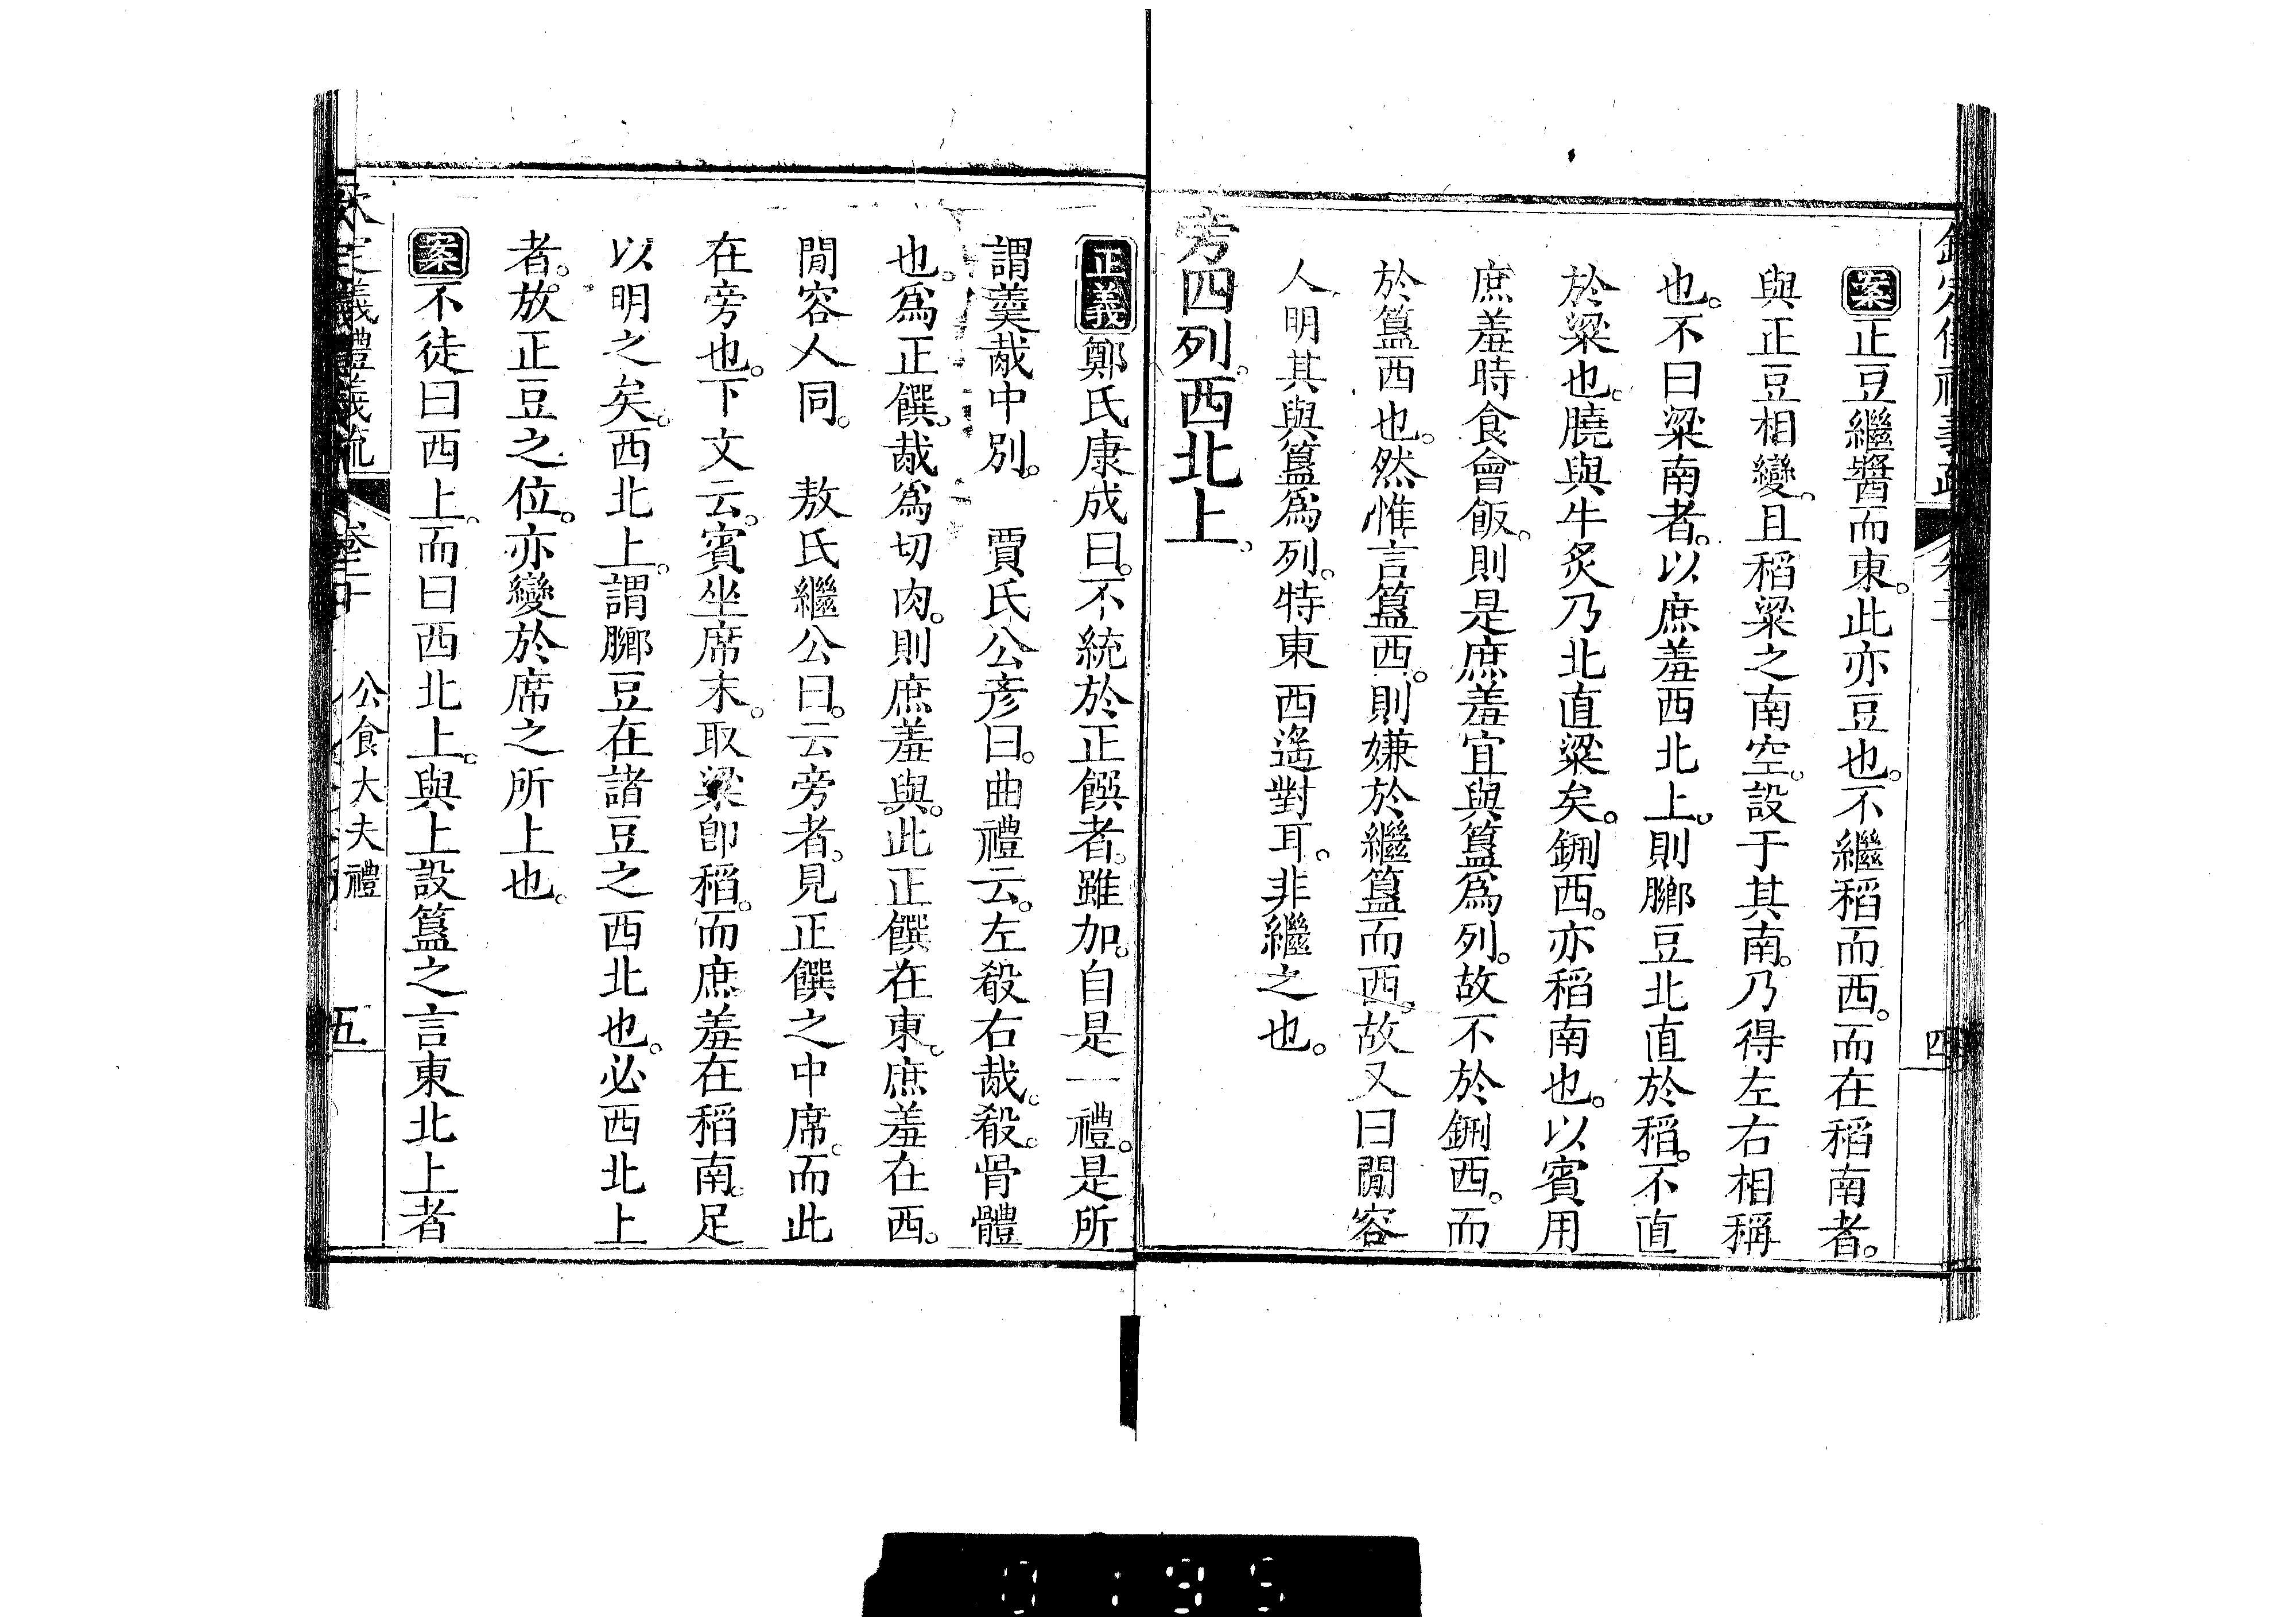 案正豆繼醬而東。此亦豆也。不繼稻而西。而在稻南者。
與正豆相變。且稻粱之南空。設于其南。乃得左右相稱
也。不曰粱南者。以庶羞西北上。則膷豆北直於稻。不直
於粱也。膮與牛炙乃北直粱矣。鉶西。亦稻南也。以賓用
庶羞時食會飯。則是庶羞宜與簋為列。故不於鉶西。而
於簋西也。然惟言簋西。則嫌於繼簋而西。故又曰閒容
人明其與簋為列。特東西遙對耳。非繼之也。
旁四列。西北上。
正義鄭氏康成曰。不統於正饌者。雖加。自是一禮。是所
謂羹胾中別。 賈氏公彥曰。曲禮云。左殽右胾。殽。骨體
也。為正饌。胾為切肉。則庶羞與。此正饌在東。庶羞在西。
閒容人同。 敖氏繼公曰。云旁者。見正饌之中席。而此
在旁也。下文云。賓坐席末。取粱卽稻。而庶羞在稻南。足
以明之矣。西北上。謂膷豆在諸豆之西北也。必西北上
者。放正豆之位。亦變於席之所上也。
案不徒曰西上。而曰西北上。與上設簋之言東北上者
公食大夫禮
五